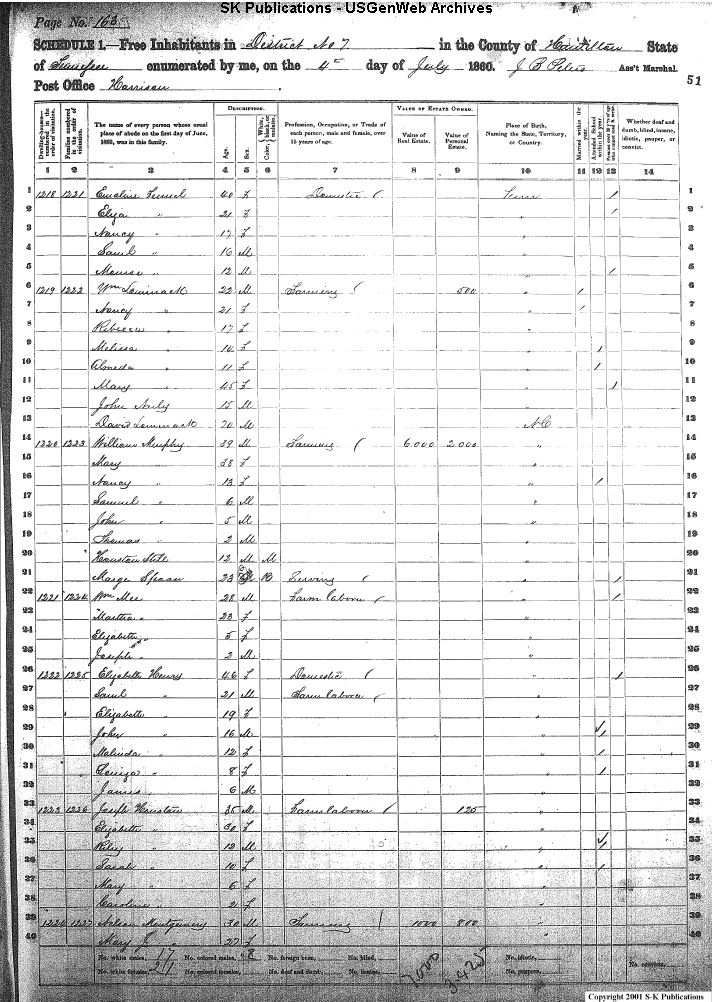 SK Publications - USGenWeb Archives
Page No. 163
SCHEDULE 1.—Free Inhabitants in District No 7 in the County of Hamilton State
of Tennessee enumerated by me, on the 4th day of July 1860. J B Peters Ass't Marshal.
51
Post Office Harrison
Dwelling-houses—numbered in the order of visitation.
Families numbered in the order of visitation.
The name of every person whose usual place of abode on the first day of June, 1860, was in this family.
DESCRIPTION.
Age.
Sex.
Color, White, black, or mulatto.
Profession, Occupation, or Trade of each person, male and female, over 15 years of age.
VALUE OF ESTATE OWNED.
Value of Real Estate.
Value of Personal Estate.
Place of Birth, Naming the State, Territory, or Country.
Married within the year.
Attended School within the year.
Whether deaf and dumb, blind, insane, idiotic, pauper, or convict.
1 2 3 4 5 6 7 8 9 10 11 12 13 14
1 1218 1221 Emaline 40 F Domestic Tenn / 1
2 Eliza " 21 F " / 2
3 Nancy " 17 F " 3
4 Saml " 16 M " 4
5 Monroe " 12 M " / 5
6 1219 1222 Wm 22 M Farming 500 " / 6
7 Nancy " 21 F " / 7
8 Rebecca " 17 F " 8
9 Melissa " 14 F " / 9
10 Almeda " 11 F " / 10
11 Mary " 45 F " / 11
12 John 15 M " 12
13 David 70 M NC 13
14 1220 1223 William Murphy 39 M Farming 6.000 2.000 " 14
15 Mary " 38 F " 15
16 Nancy " 13 F " / 16
17 Samuel " 6 M " 17
18 John " 5 M " 18
19 Thomas " 2 M " 19
20 Houston 12 M M " 20
21 Marge 23 B Serving " / 21
22 1221 1224 Wm Mee 28 M Farm laborer " / 22
23 Martha " 23 F " 23
24 Elizabeth " 5 F " 24
25 Joseph " 2 M " 25
26 1222 1225 Elizabeth Henry 46 F Domestic " / 26
27 Saml " 21 M Farm laborer " 27
28 Elizabeth " 19 F " 28
29 John " 16 M " / 29
30 Malinda " 12 F " / 30
31 Louiza " 8 F " / 31
32 James " 6 M " 32
33 1223 1226 Joseph Houston 35 M Farm laborer 125 " 33
34 Elizabeth " 30 F " 34
35 Riley " 12 M " / 35
36 Sarah " 10 F " / 36
37 Mary " 6 F " 37
38 Caroline " 2 F " 38
39 1224 1227 Nelson Montgomery 30 M Farming 1000 800 " 39
40 Mary J " 27 F " 40
No. white males, 17 No. colored males, No. foreign born, No. blind, No. idiotic, No. convicts,
No. white females, 21 No. colored females, No. deaf and dumb, No. insane, No. paupers,
7,000 3425
Copyright 2001 S-K Publications